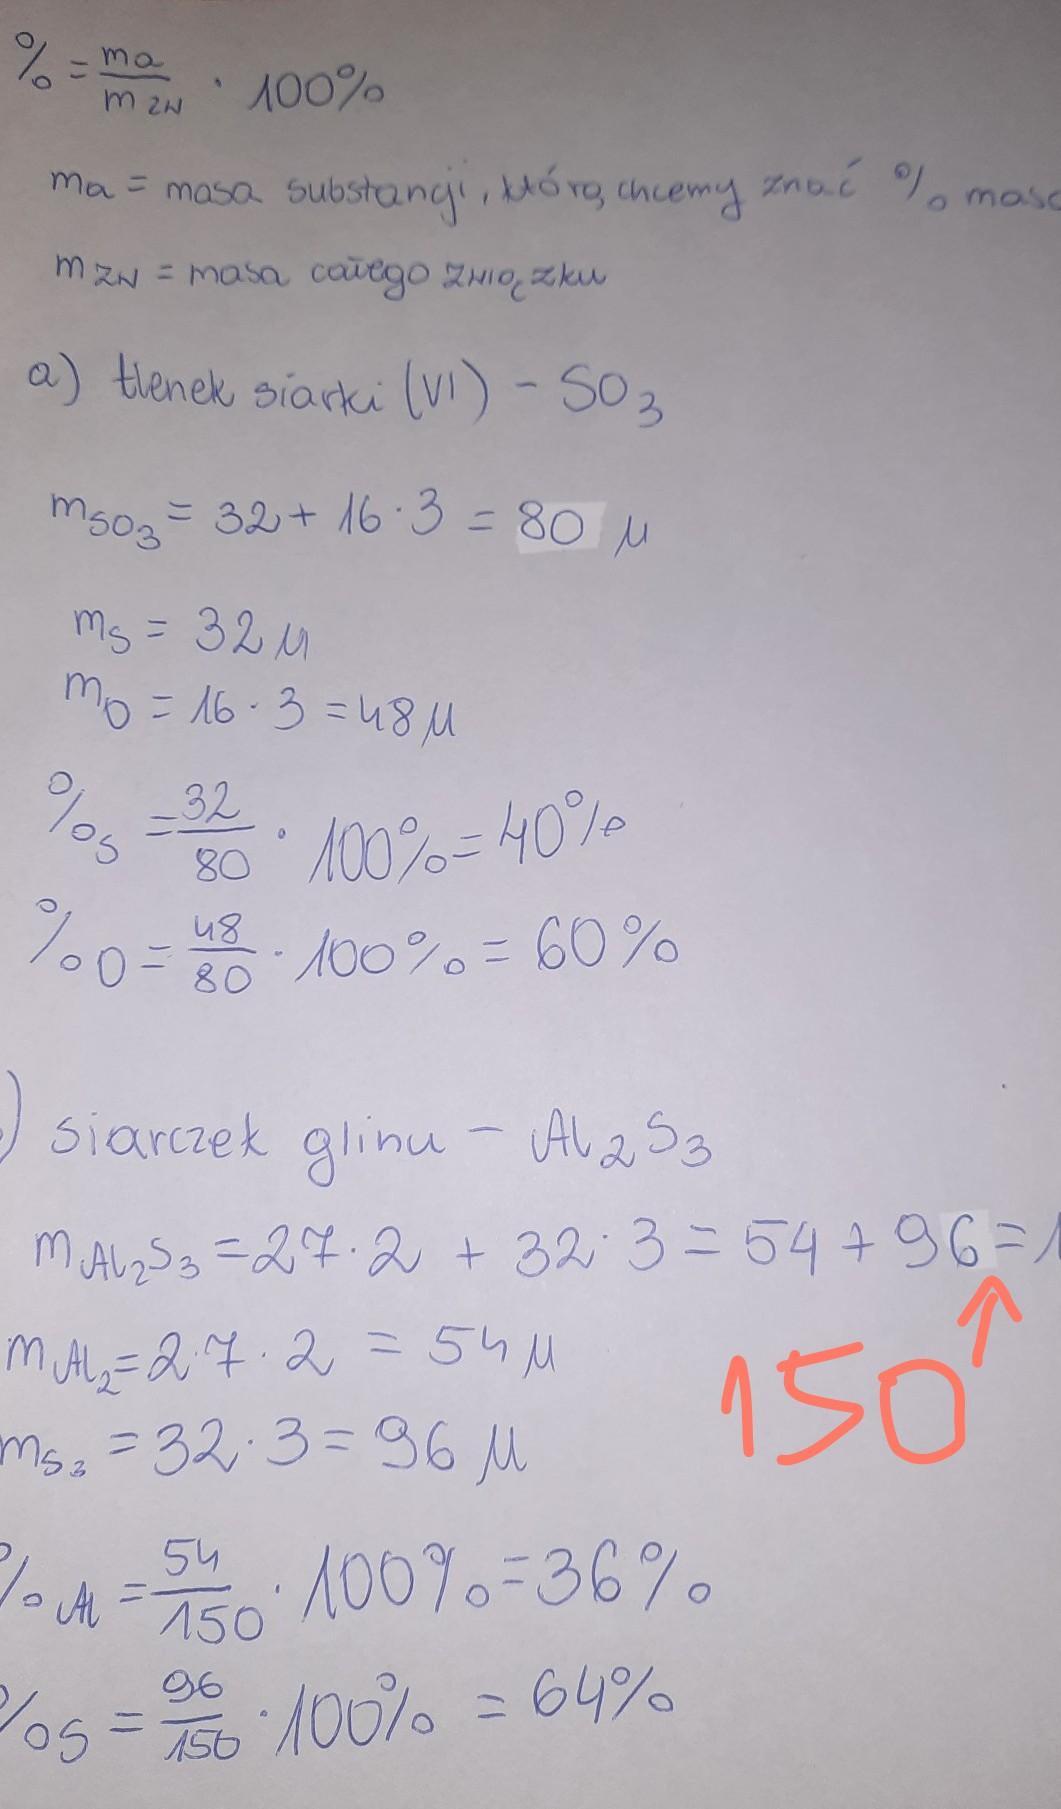 % = ma/m zw · 100%
ma = masa substancji, którą chcemy znać % mas
m zw = masa całego związku
a) tlenek siarki (VI) - SO3
mSO3 = 32 + 16 · 3 = 80 u
mS = 32 u
mO = 16 · 3 = 48 u
%S = 32/80 · 100% = 40%
%O = 48/80 · 100% = 60%
) siarczek glinu - Al2S3
mAl2S3 = 27 · 2 + 32 · 3 = 54 + 96 = 1
mAl2 = 27 · 2 = 54 u
150
mS3 = 32 · 3 = 96 u
%Al = 54/150 · 100% = 36%
%S = 96/150 · 100% = 64%